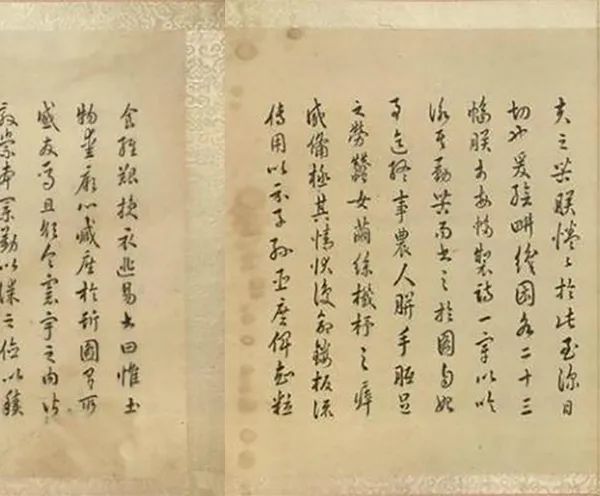 夫之苦朕惓惓於此至深且
切也爰繪畊織圖各二十三
幅朕於每幅製詩一章以吟
詠其勤苦而書之於圖自始
事迄終事農人胼手胝足
之勞蠶女繭絲機杼之瘁
咸備極其情狀復命鏤板流
傳用以示子孫臣庶俾知粒
食維艱授衣匪易書曰惟土
物愛厥心臧庶於斯圖有所
感發焉且欲令寰宇之內皆
敦崇本業勤以謀之儉以積